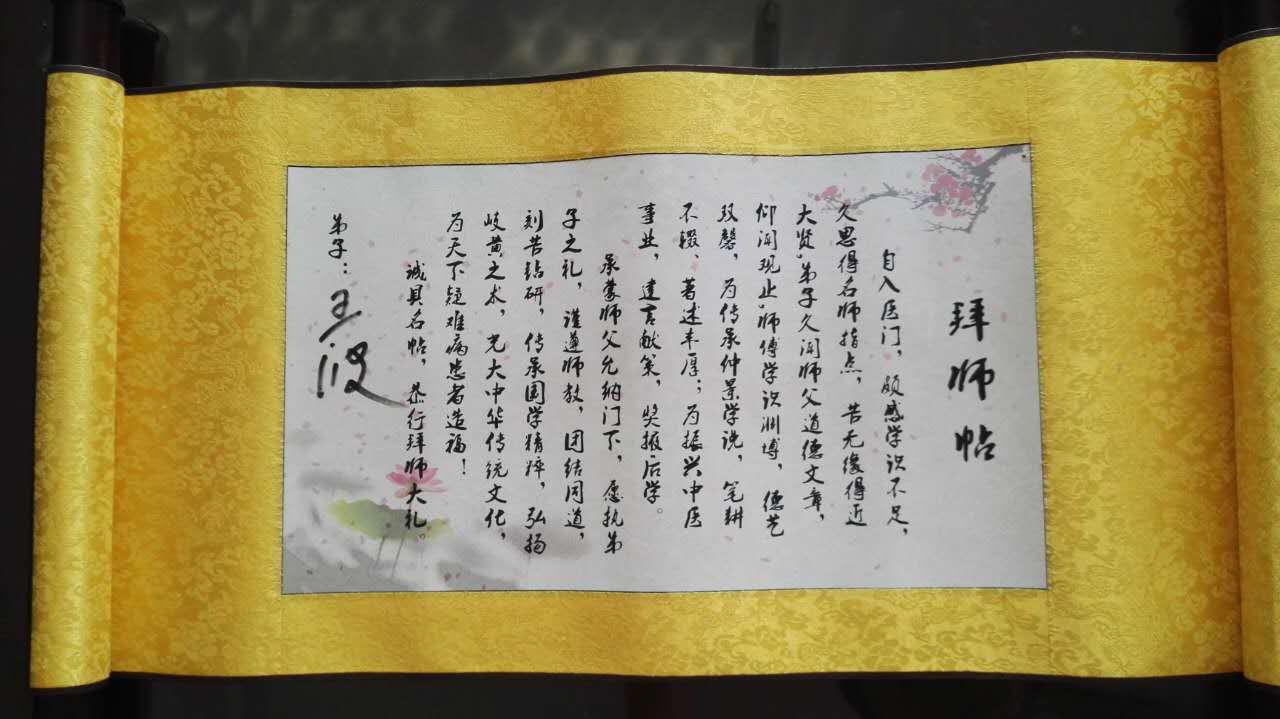 拜师帖
自入医门，颇感学识不足，
久思得名师指点，苦无缘得近
大贤，弟子久闻师父道德文章，
仰闻现止，师傅学识渊博，德艺
双馨，为传承仲景学说，笔耕
不辍、著述丰厚；为振兴中医
事业，建言献策，奖掖后学。
承蒙师父允纳门下，愿执弟
子之礼，谨遵师教，团结同道，
刻苦钻研，传承国学精粹，弘扬
岐黄之术，光大中华传统文化，
为天下疑难病患者造福！
诚具名帖，恭行拜师大礼。
弟子：王波